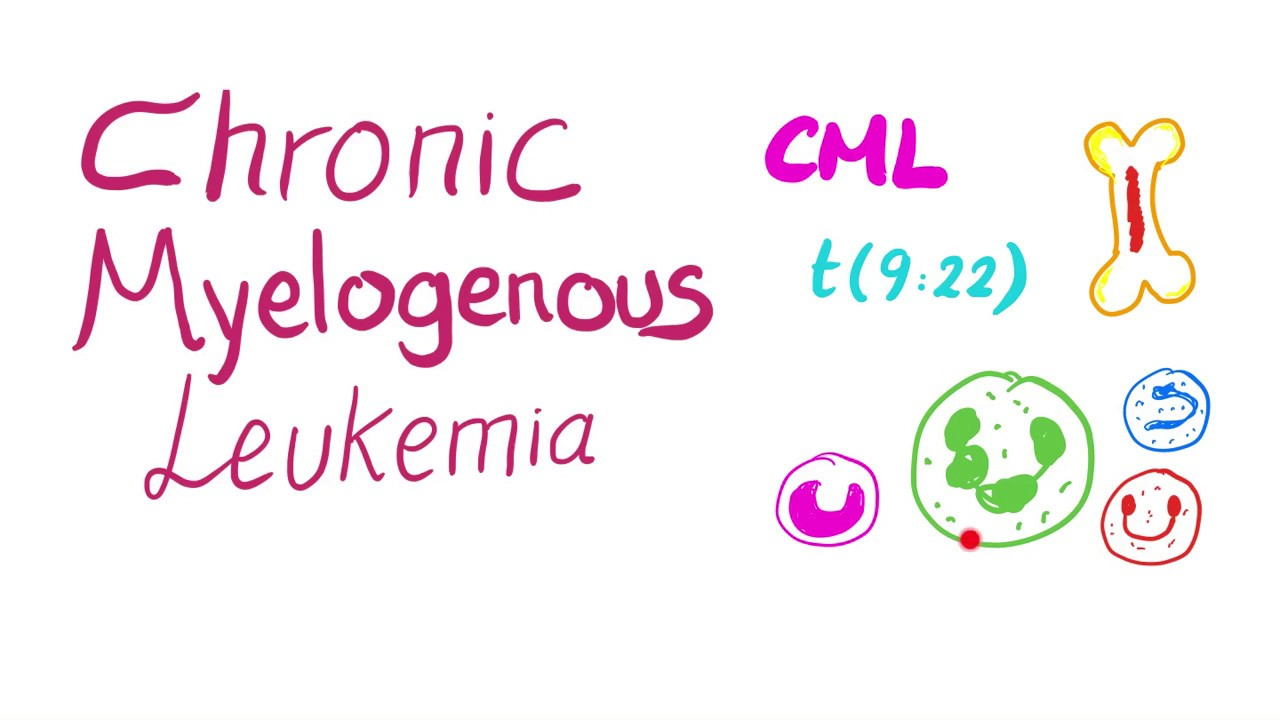 Chronic
Myelogenous
Leukemia
CML
t(9:22)